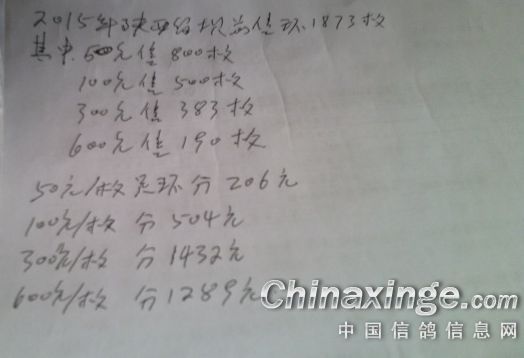 2015年陕西省根前值环1873枚
其中50元值800枚
100元值500枚
300元值383枚
600元值190枚
50元/枚足环分206元
100元/枚 分504元
300元/枚 分1432元
600元/枚 分1289元
Chinaxinge.com
中国信鸽信息网